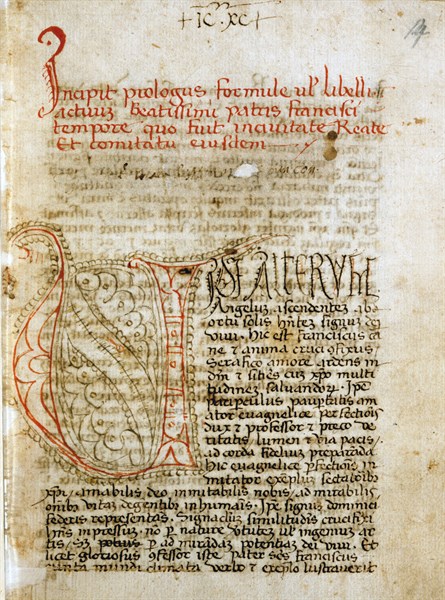 + IC · XC +
Incipit prologus formule ul' libelli
actuum Beatissimi patris francisci
tempore quo fuit in ciuitate Reate
Et comitatu eiusdem
VIDI ALTERUM
Angelum ascendentem ab
ortu solis hñtem signum dei
uiui. hic est franciscus car
ne et anima crucifixus
Serafico amore ardens in
dm et sitiēs cū xpo multi
tudinem saluandor. Ipe
paruulus paupertatis am
ator euāgelice perfectiōis
dux et professor et preco ue
ritatis lumen et uia pacis
ad corda fidelium preparāda
hic euāgelice pfectiōis in
mitator exēplum sectatoribus
xpi. amabilis deo inmitabilis nobis. admirabilis
omibus uitaz degentibus inhumāis. Ipe signum dominici
federis representās. Signaculum similitudis crucifixi
hñs inpressuz. nō p nature uirtutez ul' ingenium ar
tis. sz potius p ad mirādaz potentiaz dei uiui. Et
licet gloriosus cōfessor iste pater scs franciscus
mundi climata uerbo et exemplo lustrauerit